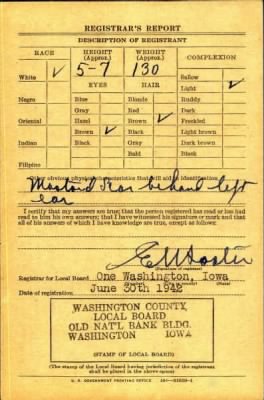 REGISTRAR'S REPORT
DESCRIPTION OF REGISTRANT
RACE HEIGHT (Approx.) WEIGHT (Approx.) COMPLEXION
White ✓ 5-7 130 Sallow
EYES HAIR Light ✓
Negro Blue Blonde Ruddy
Gray Red Dark
Oriental Hazel Brown ✓ Freckled
Brown ✓ Black Light brown
Indian Black Gray Dark brown
Bald Black
Filipino
Other obvious physical characteristics that will aid in identification
Mastoid Scar behind left
ear
I certify that my answers are true; that the person registered has read or has had
read to him his own answers; that I have witnessed his signature or mark and that
all of his answers of which I have knowledge are true, except as follows:
(Signature of registrar)
Registrar for Local Board One Washington, Iowa
Date of registration June 30th 1942
WASHINGTON COUNTY
LOCAL BOARD
OLD NAT'L BANK BLDG.
WASHINGTON IOWA
(STAMP OF LOCAL BOARD)
(The stamp of the Local Board having jurisdiction of the registrant
shall be placed in the above space.)
U. S. GOVERNMENT PRINTING OFFICE